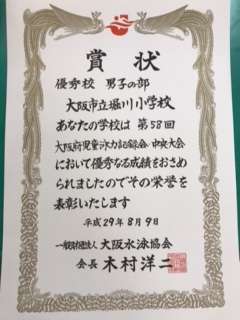 賞状
優秀校 男子の部
大阪市立堀川小学校
あなたの学校は第58回
大阪府児童泳力記録会 中央大会
において優秀なる成績をおさめ
られましたのでその栄誉を
表彰いたします
平成29年8月9日
一般財団法人 大阪水泳協会
会長 木村洋二